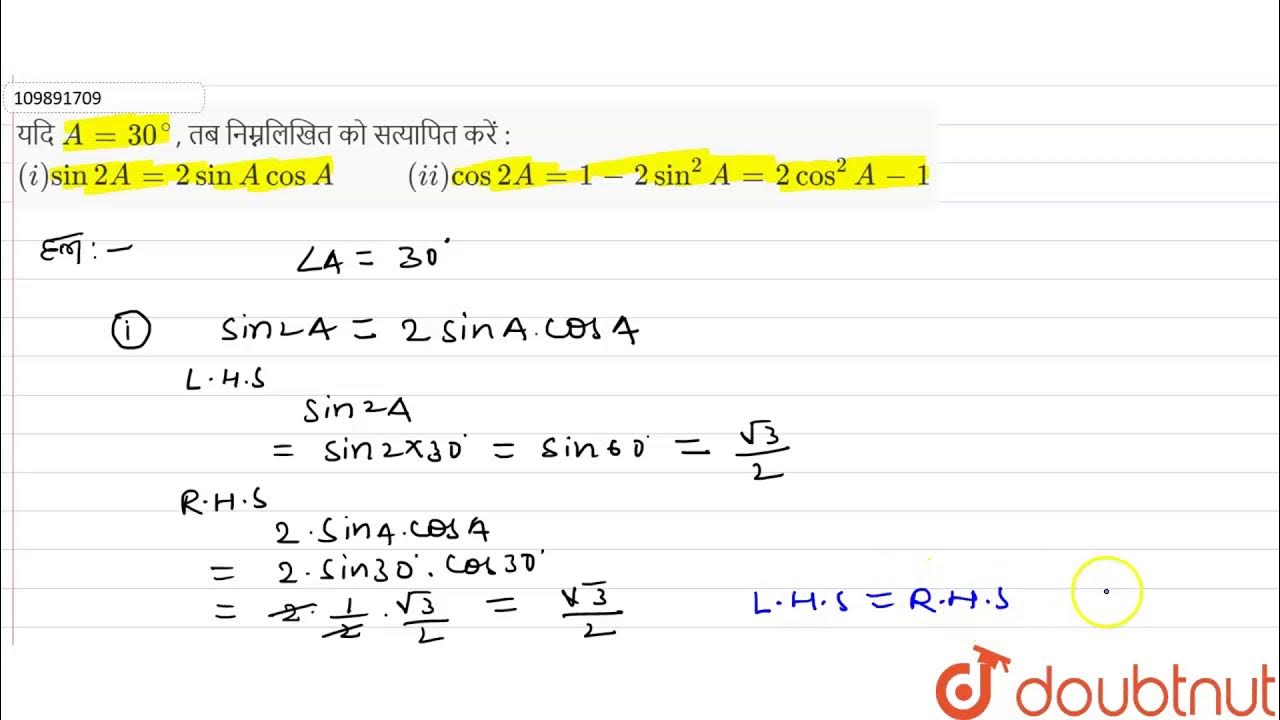 109891709
यदि A = 30°, तब निम्नलिखित को सत्यापित करें :
(i) sin 2A = 2 sin A cos A (ii) cos 2A = 1 − 2 sin² A = 2 cos² A − 1
हल :-
∠A = 30°
(i) sin2A = 2 sinA.cosA
L.H.S
sin2A
= sin2×30° = sin60° = √3/2
R.H.S
2.sinA.cosA
= 2.sin30°.cos30°
= 2.1/2.√3/2 = √3/2
L.H.S = R.H.S
doubtnut